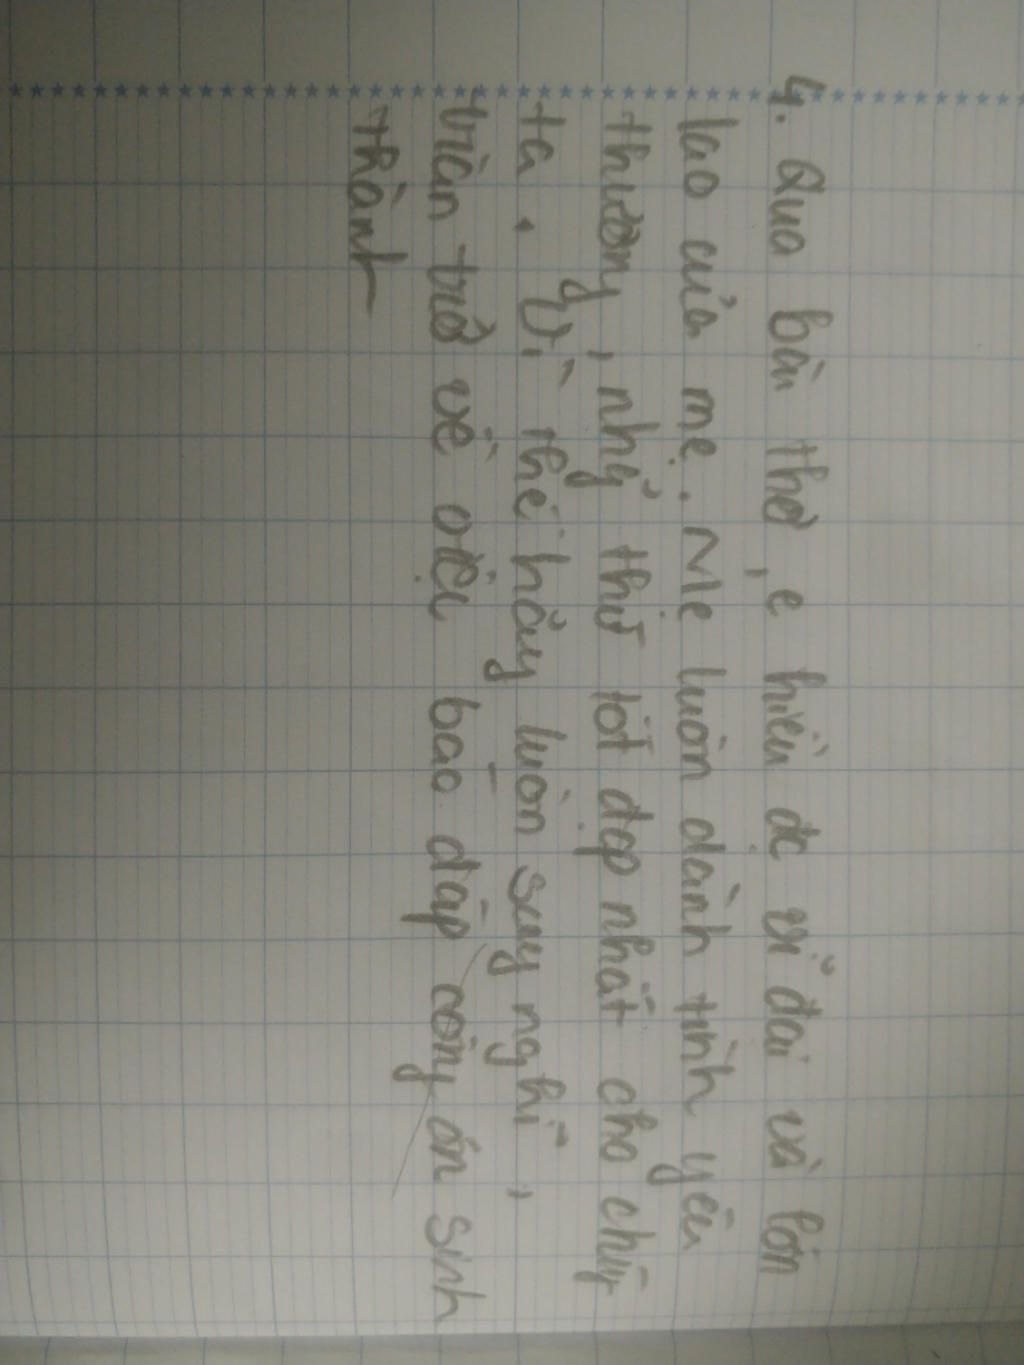 4. Qua bài thơ, e hiểu đc vĩ đại và lớn
lao của mẹ. Mẹ luôn dành tình yêu
thương, những thứ tốt đẹp nhất cho chúng
ta. Vì thế hãy luôn suy nghĩ,
trăn trở về việc báo đáp công ơn sinh
thành